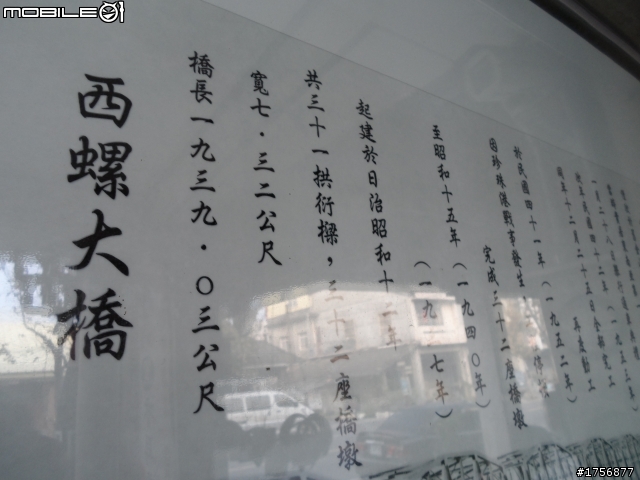 MOBILE01
西螺大橋
橋長一九三九．〇三公尺
寬七．三二公尺
共三十一拱衍樑，三十二座橋墩
起建於日治昭和十一年
（一九 七年）
至昭和十五年（一九四〇年）
完成三十二座橋墩
因珍珠港戰事發生， 停
於民國四十一年（一九五二年）
再度動工
同年十二月二十五日全部完工
#1756877